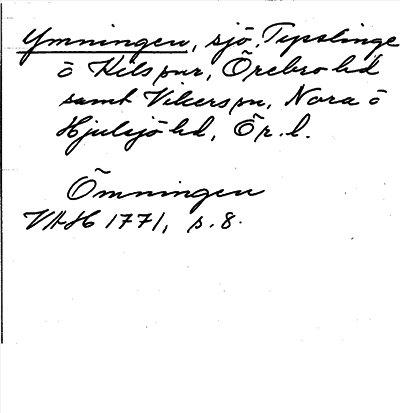 Ymningen, sjö, Tysslinge
o Kils snr, Örebro hd
samt Vikers sn, Nora o
Hjulsjö hd, Ör. l.
Ömningen
VAH 1771, s. 8.